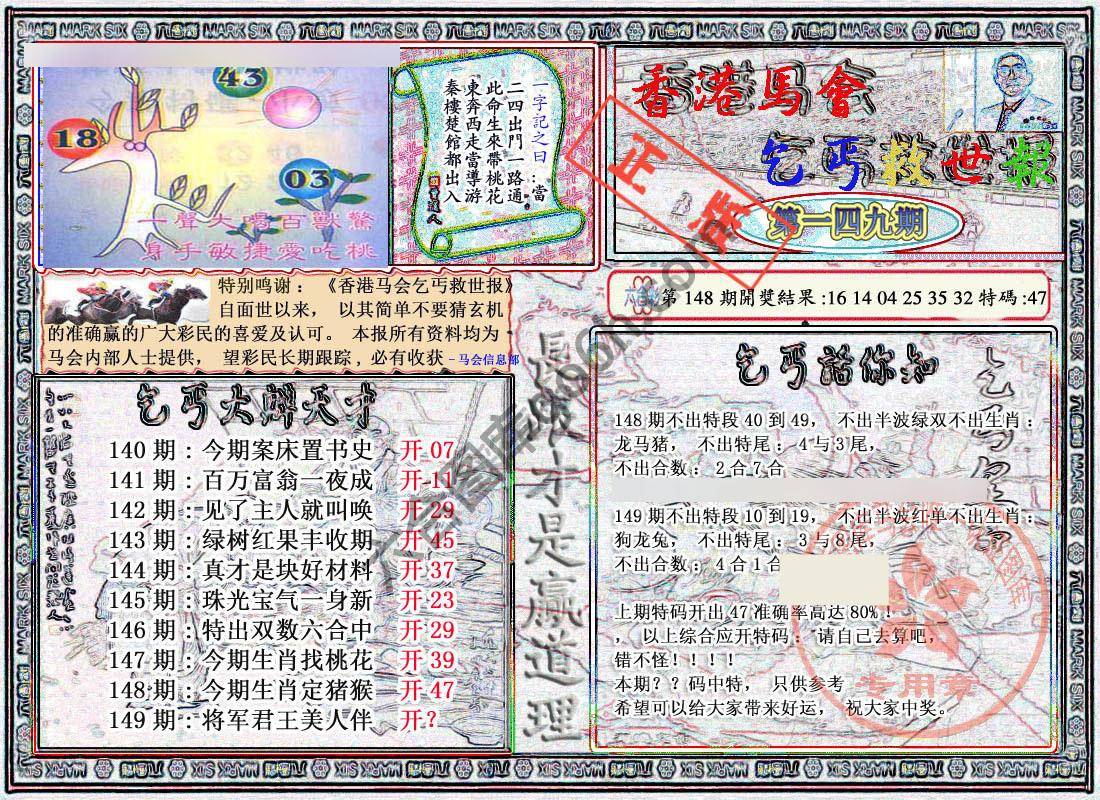 43
18
03
一聲大喝百獸驚
身手敏捷愛吃桃
一字記之曰：當
二四出門一路通
此命生來帶桃花
東奔西走當導游
秦樓楚館都出入
香港馬會
乞丐救世報
正版
第一四九期
特别鸣谢：《香港马会乞丐救世报》
自面世以来， 以其简单不要猜玄机
的准确赢的广大彩民的喜爱及认可。 本报所有资料均为
马会内部人士提供， 望彩民长期跟踪，必有收获 - 马会信息部
第 148 期開獎結果 :16 14 04 25 35 32 特碼 :47
乞丐大辩天才
140 期：今期案床置书史 开 07
141 期：百万富翁一夜成 开 11
142 期：见了主人就叫唤 开 29
143 期：绿树红果丰收期 开 45
144 期：真才是块好材料 开 37
145 期：珠光宝气一身新 开 23
146 期：特出双数六合中 开 29
147 期：今期生肖找桃花 开 39
148 期：今期生肖定猪猴 开 47
149 期：将军君王美人伴 开？
才是赢道理
乞丐話你知
148 期不出特段 40 到 49， 不出半波绿双不出生肖：
龙马猪， 不出特尾：4 与 3 尾，
不出合数：2 合 7 合
149 期不出特段 10 到 19， 不出半波红单不出生肖：
狗龙兔， 不出特尾：3 与 8 尾，
不出合数：4 合 1 合
上期特码开出 47 准确率高达 80%！
， 以上综合应开特码：请自己去算吧，
错不怪！！！！
本期？？码中特， 只供参考
希望可以给大家带来好运， 祝大家中奖。
专用章